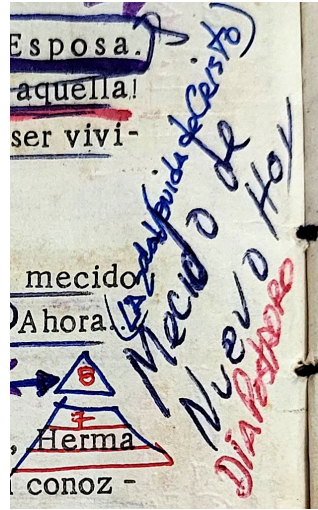 Esposa.
aquella!
ser vivi-
mecido
Ahora.
8
7
, Herma
conoz-
de Cristo)
Mecido de
Nuevo Hoy
DíA Postrero